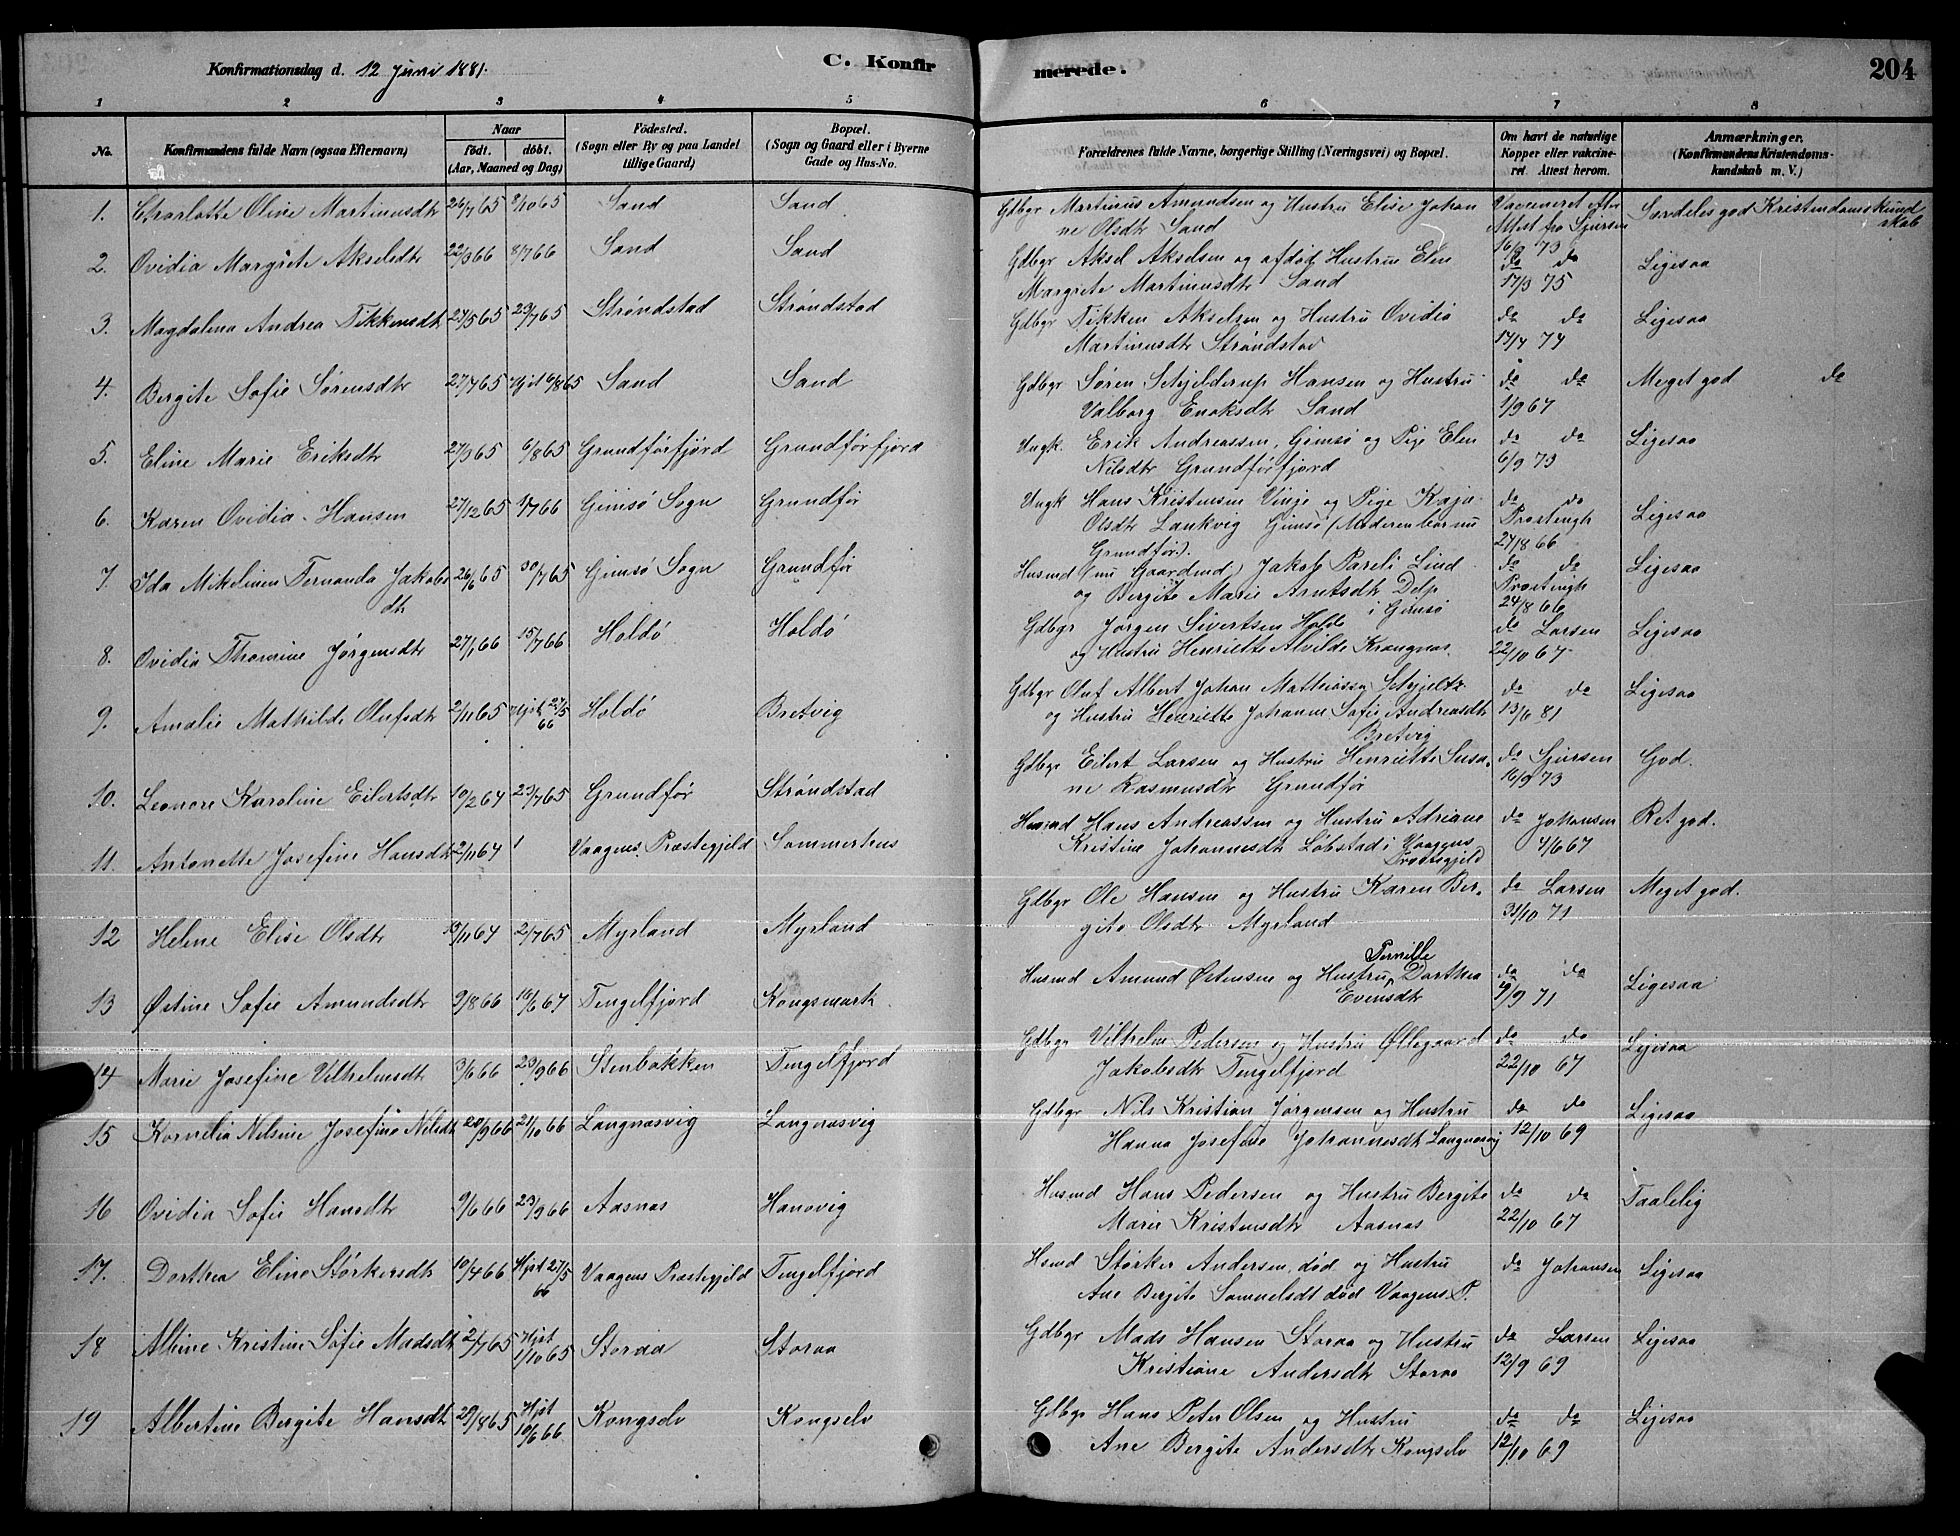 Konfirmationsdag d. 12 Juni 1881. C. Konfirmerede. 204
1 2 3 4 5 6 7 8
No. Konfirmandens fulde Navn (ogsaa Efternavn) Naar Födt. döbt. (Aar, Maaned og Dag) Födested. (Sogn eller By og paa Landet tillige Gaard) Bopæl. (Sogn og Gaard eller i Byerne Gade og Hus-No. Forældrenes fulde Navne, borgerlige Stilling (Næringsvei) og Bopæl. Om havt de naturlige Kopper eller vakcineret. Attest herom. Anmærkninger. (Konfirmandens Kristendomskundskab m. V.)
1. Charlotte Oline Martinusdtr 26/7 65 8/10 65 Sand Sand Gdbgr Martinus Amundsen og Hustru Elise Johan Vaccineret efter Særdeles god Kristendomskund
ne Olsdtr Sand Attest fra Sjursen skab
16/9 73
2. Ovidia Margrete Akselsdtr 22/3 66 8/7 66 Sand Sand Gdbgr Aksel Akselsen og afdød Hustru Elen do do Ligesaa
Margrete Martinusdtr Sand 17/9 75
3. Magdalena Andrea Tikkensdtr 24/5 65 23/7 65 Strøndstad Strøndstad Gdbgr Tikken Akselsen og Hustru Ovidia do do Ligesaa
Martinusdtr Strøndstad 17/7 74
4. Bergite Sofie Sørensdtr 27/7 65 Hjst 6/8 65 Sand Sand Gdbgr Søren Schjelderup Hansen og Hustru do do Meget god do
Valborg Enoksdtr Sand 1/9 67
5. Eline Marie Eriksdtr 27/3 65 6/8 65 Grundførfjord Grundførfjord Ungk. Erik Andreassen, Gimsø og Pige Elen do do Ligesaa
Nilsdtr Grundførfjord 6/9 73
6. Karen Ovidia Hansen 27/12 65 1/7 66 Gimsø Sogn Grundfør Ungk Hans Kristensen Vinje og Pige Kaja do do Ligesaa
Olsdtr Laukvig Gimsø (Moderen bor nu
Grundfør). 27/8 66
7. Ida Mikelinen Fernanda Jakobs 26/6 65 30/7 65 Gimsø Sogn Grundfør Husmd (nu Gaardmd) Jakob Pareli Lind do do Ligesaa
dtr og Bergite Marie Arntsdtr Delp
i Gimsø 24/8 66
8. Ovidia Thomine Jørgensdtr 27/1 66 15/7 66 Holdø Holdø Gdbgr Jørgen Sivertsen Holdø do Larsen Ligesaa
og Hustru Henriette Alvilde Krangnæs 22/10 67
9. Amalie Mathilde Olufsdtr 2/11 65 Hjst 27/5 66 Holdø Bretvig Gdbgr Oluf Albert Johan Mathiassen Schjeltz do do Ligesaa
og Hustru Henriette Johanne Sofie Andreasdtr 13/6 81
Bretvig
10. Leonore Karoline Eilertsdtr 10/2 64 23/7 65 Grundfør Strøndstad Gdbgr Eilert Larsen og Hustru Henriette Susa- do Sjursen God.
ne Rasmusdtr Grundfør 16/9 73
11. Antonette Josefine Hansdtr 2/11 64 Vaagens Præstegjeld Sommerhus Husmd Hans Andreassen og Hustru Adriane do Johansen Ret god.
Kristine Johannesdtr Løbstad i Vaagens 4/6 67
Præstegjeld
12 Helene Elise Olsdtr 13/11 64 2/7 65 Myrland Myrland Gdbgr Ole Hansen og Hustru Karen Ber- do Larsen Meget god.
gite Olsdtr Myrland 31/10 71
13 Østine Sofie Amundsdtr 9/8 66 16/6 67 Tengelfjord Kongsmark Husmd Amund Østensen og Hustru Pernille Dorthea do do Ligesaa
Evensdtr 9/9 71
14 Marie Josefine Vilhelmsdtr 3/6 66 23/9 66 Stenbakken Tengelfjord Gdbgr Vilhelm Pedersen og Hustru Øllegaard do do Ligesaa
Jakobsdtr Tengelfjord 22/10 67
15 Kornelia Nilsine Josefine Nilsdtr 20/9 66 21/10 66 Langnæsvig Langnæsvig Gdbgr Nils Kristian Jørgensen og Hustru do do Ligesaa
Hanna Josefine Johannesdtr Langnæsvig 12/10 69
16 Ovidia Sofie Hansdtr 9/6 66 23/9 66 Aasnæs Hanøvig Husmd Hans Pedersen og Hustru Bergite do do Taalelig
Marie Kristensdtr Aasnæs 22/10 67
17. Dorthea Eline Størkersdtr 10/4 66 Hjst 27/5 66 Vaagens Præstegjeld Tengelfjord Hsmd Størker Andersen, død og Hustru do Johansen Ligesaa
Ane Bergite Samuelsdtr død Vaagens P.
18 Albine Kristine Sofie Madsdtr 2/7 65 Hjst 1/10 65 Storaa Storaa Gdbgr Mads Hansen Storaa og Hustru do Larsen Ligesaa
Kristiane Andersdtr Storaa 12/9 69
19 Albertine Bergite Hansdtr 29/8 65 Hjst 10/6 66 Kongselv Kongselv Gdbgr Hans Peter Olsen og Hustru do do Ligesaa
Ane Bergite Andersdtr Kongselv 12/10 69